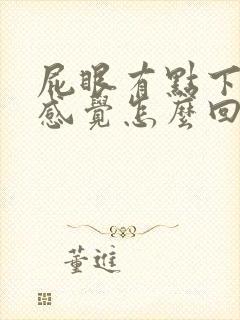 屁眼有點下
感覺怎麼回
董進